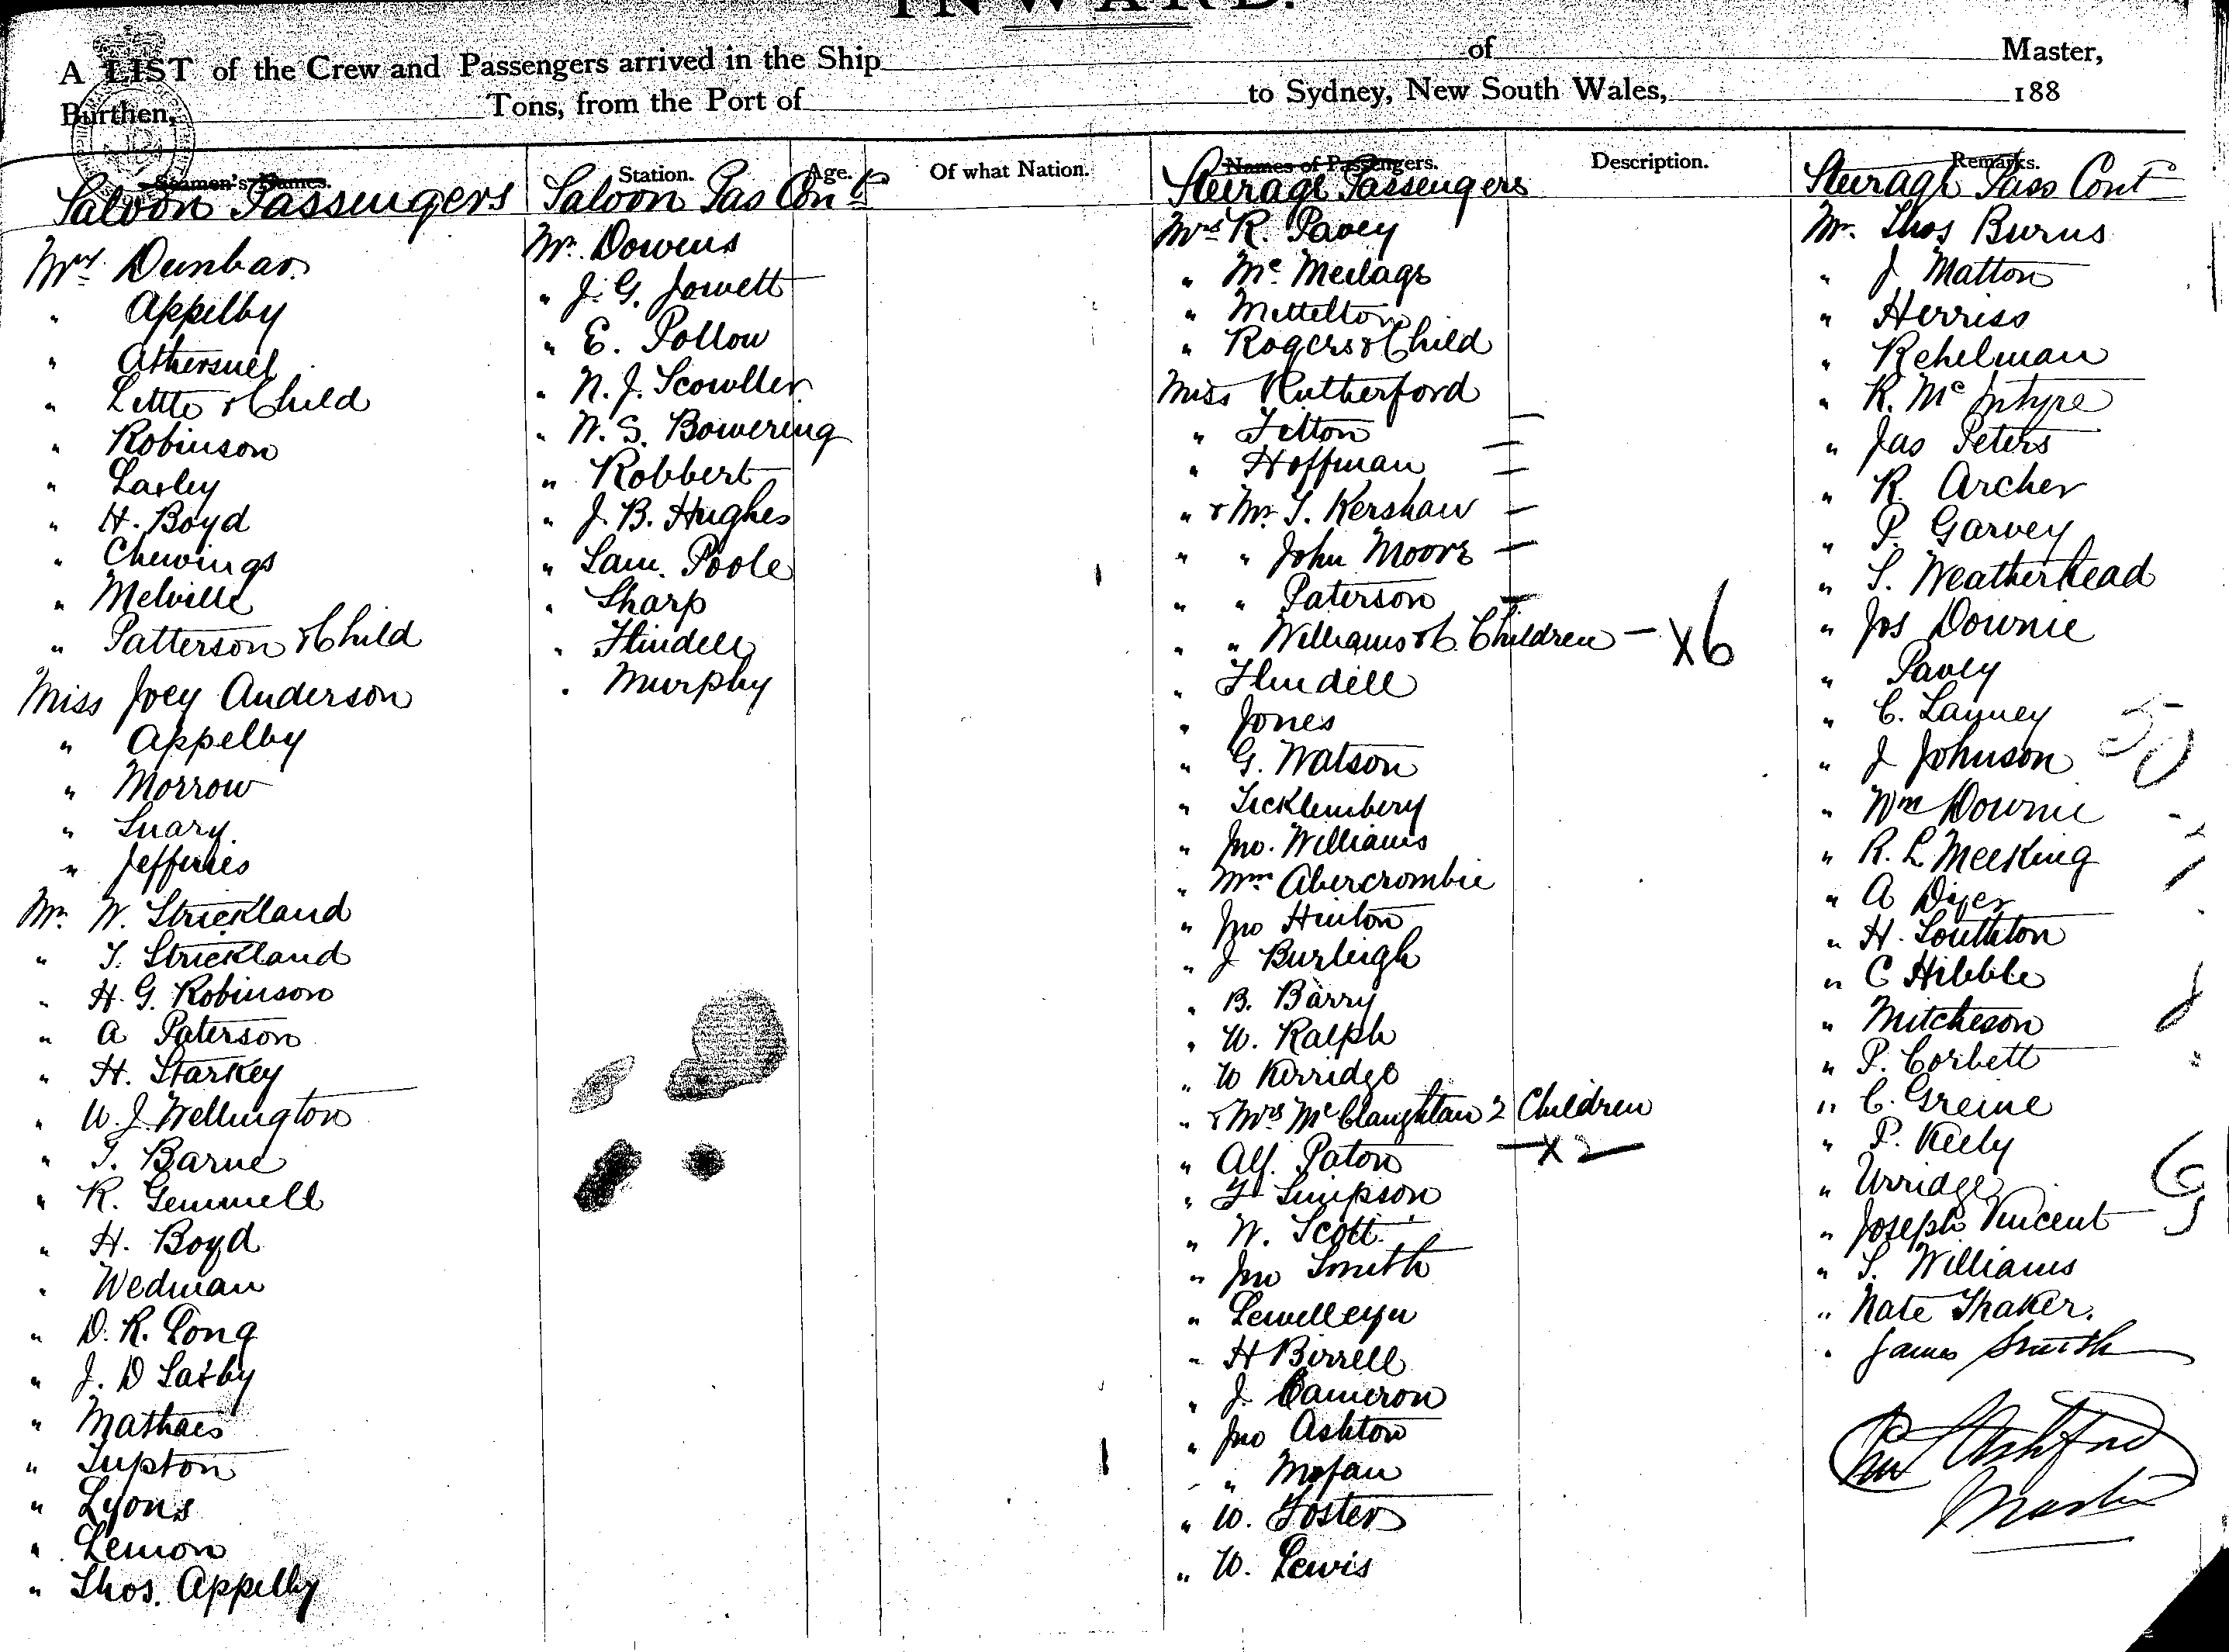 INWARD.
A LIST of the Crew and Passengers arrived in the Ship of Master,
Burthen, Tons, from the Port of to Sydney, New South Wales, 188
Seamen's Names.
Saloon Passengers
Mrs Dunbar
" Appelby
" Athersuel
" Little & Child
" Robinson
" Lasley
" H. Boyd
" Chewings
" Melville
" Patterson & Child
Miss Joey Anderson
" Appelby
" Morrow
" Suary
" Jefferies
Mr. W. Strickland
" T. Strickland
" H. G. Robinson
" A Paterson
" H. Starkey
" W. J. Wellington
" T. Barne
" R. Gemmell
" H. Boyd
" Wedman
" D. R. Long
" J. D Lasby
" Mathais
" Tupton
" Lyons
" Lemon
" Thos. Appelby
Station. Age.
Saloon Pas Cont
Mr. Dowens
" J. G. Jowett
" E. Pollow
" N. J. Scowller
" W. S. Bowering
" Robbert
" J. B. Hughes
" Sam. Poole
" Sharp
" Hindell
" Murphy
Of what Nation.
Names of Passengers. Description.
Steerage Passengers
Mrs R. Pavey
" Mc Meilage
" Mittelton
" Rogers & Child
Miss Rutherford
" Felton
" Hoffman
" & Mr. T. Kershaw
" " John Moore
" " Paterson
" " Williams & 6 Children – x6
" Hindell
" Jones
" G. Watson
" Jno. Williams
" Wm Abercrombie
" Jno Hinton
" J Burleigh
" B. Barry
" W. Ralph
" W Kerridge
" & Mrs McClaughtan 2 Children
– x2 –
" Alf. Paton
" F Simpson
" W. Scott
" Jno Smith
" Lewelleyn
" H Birrell
" J. Cameron
" Jno Ashton
" " Mofan
" W. Foster
" W. Lewis
Remarks.
Steerage Pass Cont
Mr. Thos Burns
" J Matton
" Herriss
" Rehelman
" R. McIntyre
" Jas Peters
" R. Archer
" P. Garvey
" S. Weatherhead
" Jos Downie
" Pavey
" C. Lanney
" J Johnson
" Wm Downie
" R. L. Meeking
" A Dyer
" H. Southton
" C Hibble
" Mitcheson
" P. Corbett
" C. Greine
" P. Keely
" Urridge
" Joseph Vincent
" S. Williams
" Nate Thaker.
" James Smith
Ashford
Master